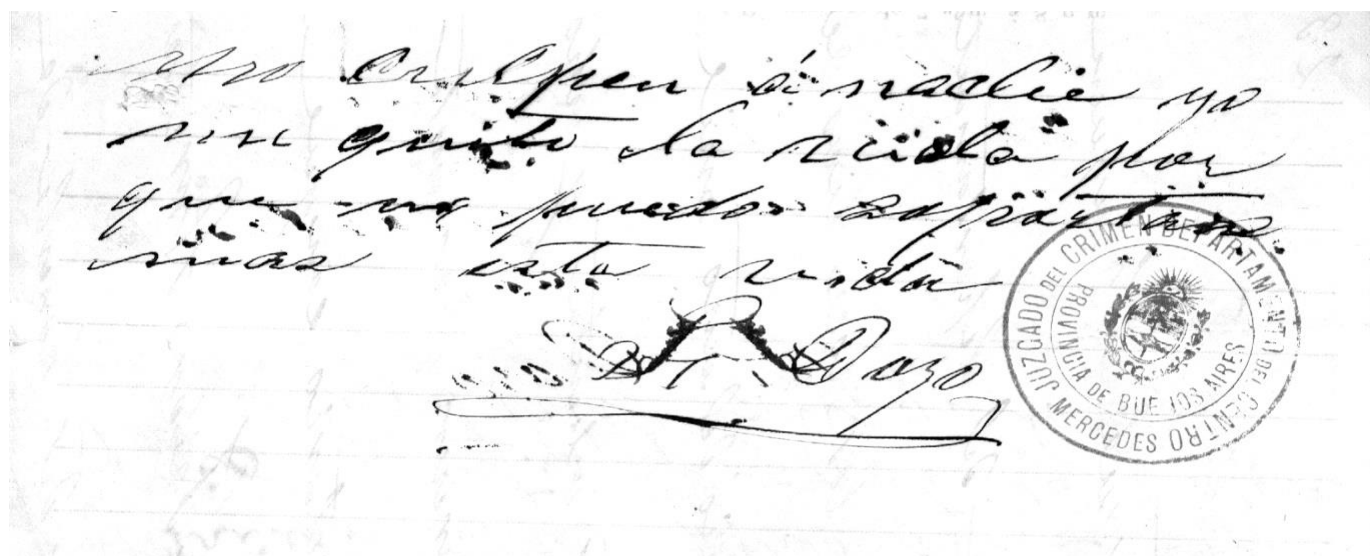 no culpen á nadie yo
me quito la vida por
que no puedo soportar
mas esta vida
Dozo
JUZGADO DEL CRIMEN DEPARTAMENTO DEL CENTRO
MERCEDES
PROVINCIA DE BUENOS AIRES